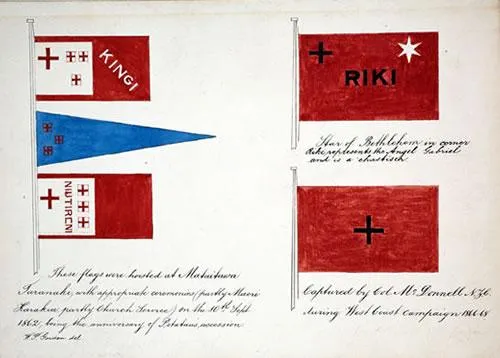 KINGI
NIUTIRENI
These flags were hoisted at Mataitawa
Taranaki, with appropriate ceremonies (partly Maori
Karakia partly Church Service) on the 10th Sept
1862, being the anniversary of Potatau's accession
W.F. Gordon del.
RIKI
Star of Bethlehem in corner
Riki represents the Angel Gabriel
and is a chastiser
Captured by Col McDonnell N.Z.C.
during West Coast Campaign 1866-68